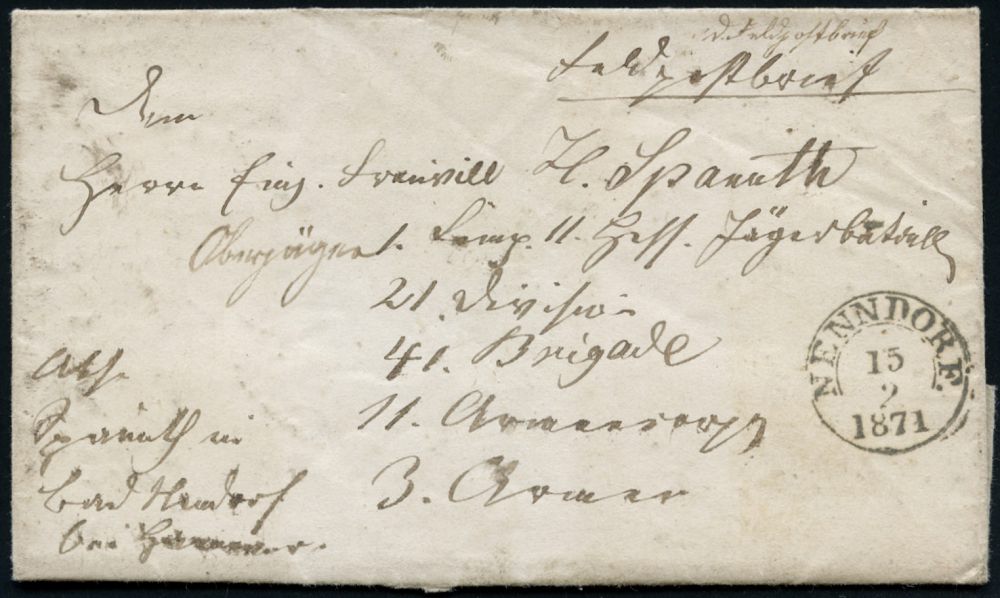 d. Feldpostbrief
Feldpostbrief
Dem
Herrn Einj. Freiwill H. Spanuth
Oberjäger 1. Comp. 11. Hess. Jägerbataill
21. Division
41. Brigade
11. Armeecorps
3. Armee
Abs.
Spanuth in
Bad Nendorf
bei Hannover.
NENNDORF.
15
2
1871